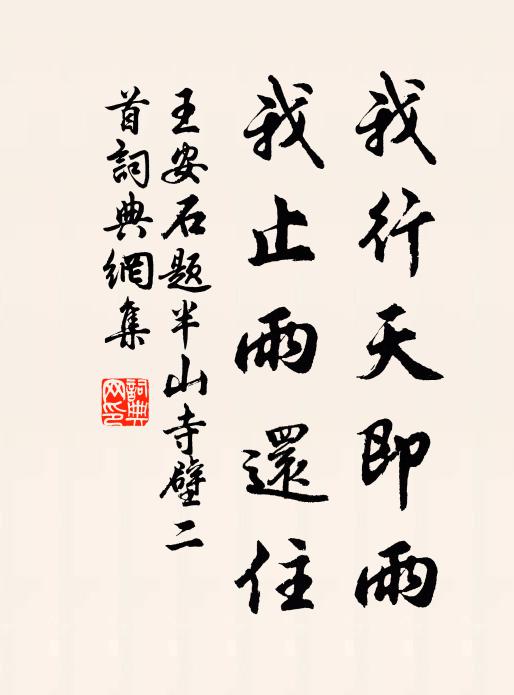 我行天即雨
我止雨還住
王安石题半山寺壁二
首詞典網集
詞典網印